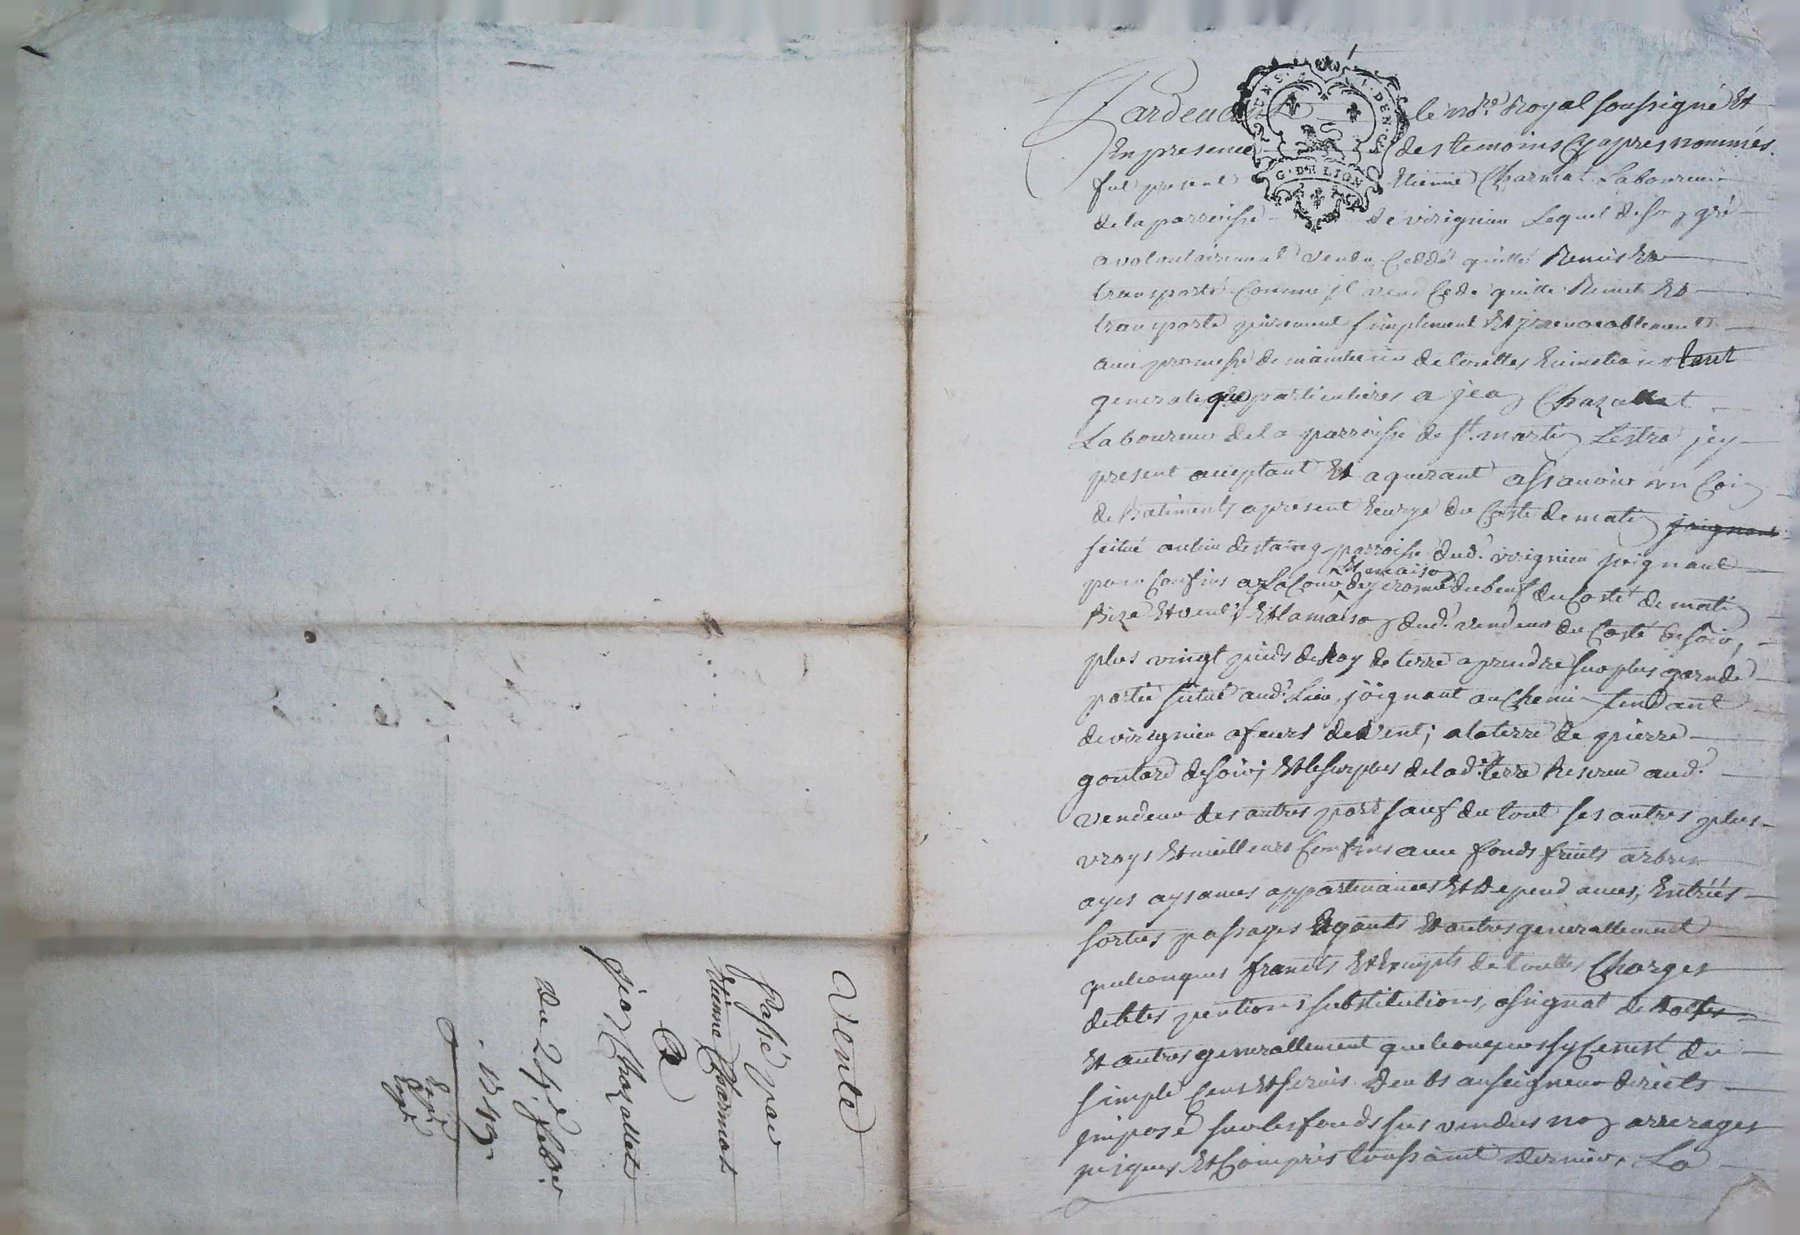 Vente
Passé par
Etienne Charmat
A
Jean Chazallet
Du 24e febvr
1747
G. DE LION
Pardevant le nore Royal soussigné Et
En presence des temoins Cy apres nommés
fut present Etienne Charmat Laboureur
de la parroisse de virignieu Lequel de son gré
a volontairement vendu Ceddé quitté Remis Et
transporté Comme jl vend Cede quitte Remet Et
transporte purement simplement Et jrrevocablement
avec promesse de maintenir de touttes Evictions tant
generale que particulieres a jean Chazallet
Laboureur de la parroisse de st. martin Lestra jcy
present acceptant Et aquerant assavoir un Coin
de Batiments apresent du Coste de matin joignant
scitué au lieu destaing parroisse dud. virignieu joignant
pour Confins a la Cour Et maison de jerosme dubeuf du Costé de matin
Bize Et vent, Et la maison dud. vendeur du Costé de soir,
plus vingt pieds de Roy de terre a prendre sur plus grande
partie scitué aud. Lieu, joignant au Chemin tendant
de virignieu a feurs de vent; a la terre de pierre
goutard de soir; Et le surplus de lad. terre Reservé aud.
vendeur des autres part sauf du tout ses autres plus
vrays Et meilleurs Confins avec fonds fruits arbres
ayes aysances appartenances Et Dependances, Entrées
sorties passages Egouts Et autres generallement
quelconques francs Et Exempts de touttes Charges
debtes pentions substitutions, asignat de dottes
Et autres generallement quelconques sy Ce nest du
simple Cens Et servis deubs au seigneur directs
jmposé sur les fonds sus vendus non arrerages
jusques Et Compris toussaint dernier, La